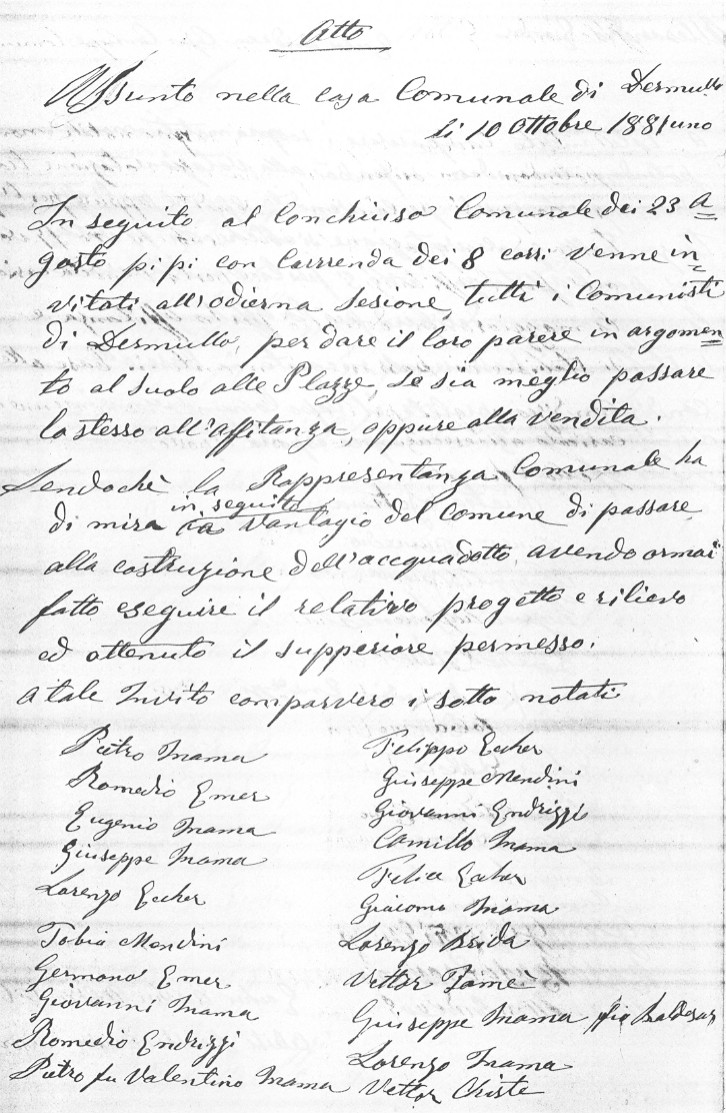 Atto
Assunto nella Casa Comunale di Dermullo
li 10 Ottobre 1881 uno
In seguito al Conchiuso Comunale dei 23 A=
gosto pi pi con Currenda dei 8 corr. venne in=
vitati all'odierna Sesione tutti i Comunisti
di Dermullo, per dare il loro parere in argomen=
to al Suolo alle Plazze, se sia meglio passare
lo stesso all'affitanza, oppure alla vendita.
Sendochè la Rappresentanza Comunale ha
in seguito
di mira a Vantagio del Comune di passare
alla costruzione dell'acquadotto, avendo ormai
fatto eseguire il relativo progetto e rilievo
ed ottenuto il superiore permesso.
A tale Invito comparvero i sotto notati
Pietro Inama
Romedio Emer
Eugenio Inama
Giuseppe Inama
Lorenzo Eccher
Tobia Mendini
Germano Emer
Giovanni Inama
Romedio Endrizzi
Pietro fu Valentino Inama
Filippo Eccher
Giuseppe Mendini
Giovanni Endrizzi
Camillo Inama
Felice Eccher
Giacomo Inama
Lorenzo Brida
Vettor Tamè
Giuseppe Inama fu Baldesar
Lorenzo Inama
Vettor Christe